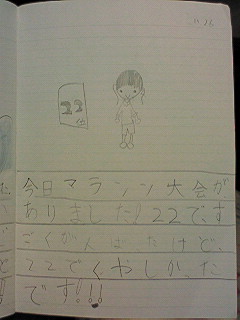 22
位
今日マラソン大会が
ありました!22です
ごくがんばたけど、
22でくやしかった
です!!!